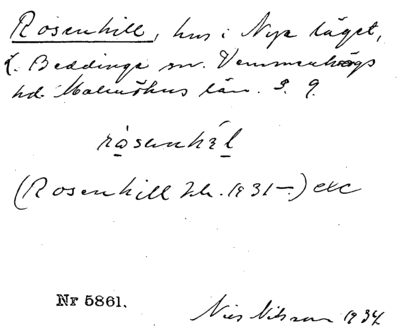 Rosenhill, hus i Nya läget,
L. Beddinge sn. Vemmenhögs
hd. Malmöhus län. S. 9.
rosenhel
(Rosenhill Jdr. 1931–) exc
Nr 5861.
Nils Nilsson 1934